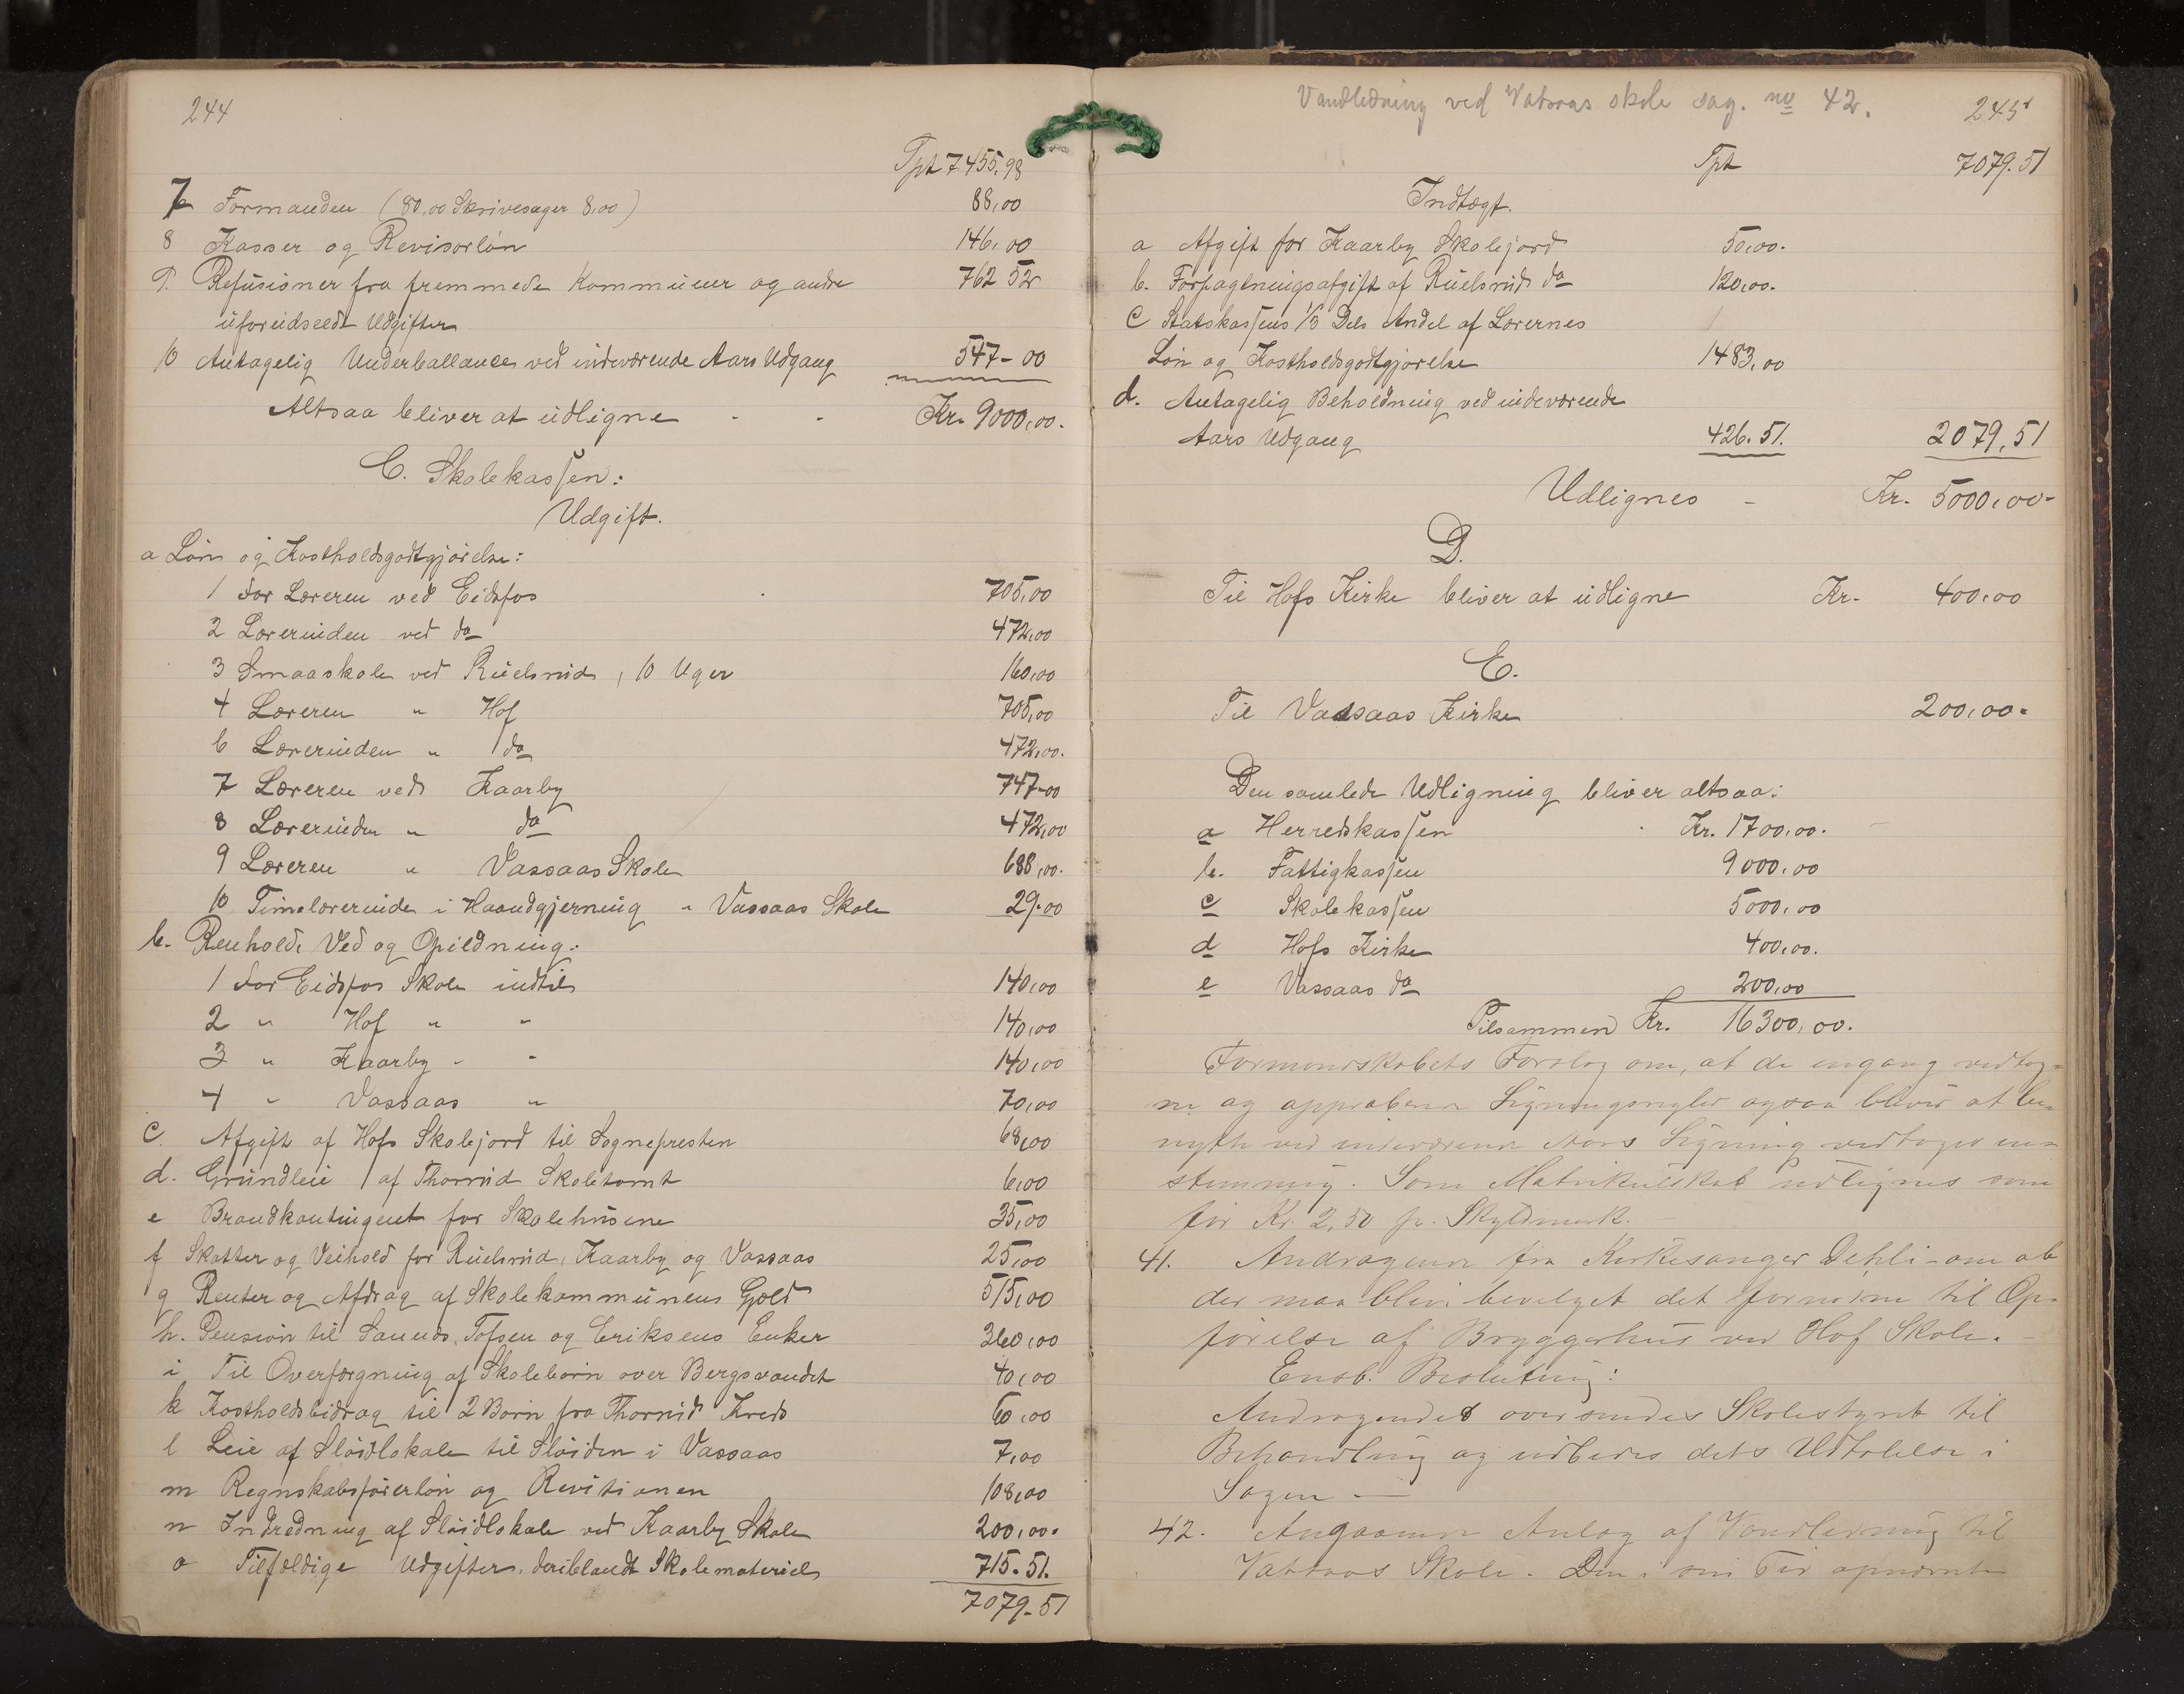 244
Tpt 7.455,98
7 Formanden (80,00 Skrivesager 8,00) 88,00
8 Kasser og Revisorløn 146,00
9. Refusioner fra fremmede Kommuner og andre 762 52
uforudseede Udgifter
10 Antagelig Underballance ved indeværende Aars Udgang 547-00
Altsaa bliver at udligne - - Kr. 9000,00.
C. Skolekassen:
Udgift.
a Løn og Kostholdsgodtgjørelse:
1 For Læreren ved Eidsfos 705,00
2 Lærerinden ved do 472,00
3 Smaaskole ved Ruelsrud, 10 Uger 160,00
4 Læreren " Hof 705,00
6 Lærerinden " do 472,00.
7 Læreren ved Kaarby 747-00
8 Lærerinden " do 472,00
9 Læreren " Vassaas Skole 688,00.
10 Timelærerinde i Haandgjerning " Vassaas Skole 29.00
b. Renhold, Ved og Opildning:
1 For Eidsfos Skole indtil 140,00
2 " Hof " " 140,00
3 " Kaarby " " 140,00
4 " Vassaas " 70,00
c. Afgift af Hofs Skolejord til Sognepresten 68,00
d. Grundleie af Thorrud Skoletomt 6,00
e Brandkontingent for Skolehusene 35,00
f Skatter og Veihold for Ruelsrud, Kaarby og Vassaas 25,00
g Renter og Afdrag af Skolekommunens Gjæld 515,00
h. Pension til Sauuds, Tofsen og Eriksens Enker 360,00
i Til Overførgning af Skolebørn over Bergsvandet 40,00
k Kostholdsbidrag til 2 Børn fra Thorrud Kreds 60,00
l Leie af Sløidlokale til Sløiden i Vassaas 7,00
m Regnskabsførerløn og Revisionen 108,00
n Indredning af Sløidlokale ved Kaarby Skole 200,00.
o Tilfældige Udgifter, deriblandt Skolemateriel 715.51.
7079.51
Vandledning ved Vatsaas skole sag. no 42.
245
Tpt 7079.51
Indtægt.
a Afgift for Kaarby Skolejord 50,00.
b. Forpagtningsafgift af Ruelsrud do 120,00.
c Statskassens 1/3 Dels Andel af Lærernes
Løn og Kostholdsgodtgjørelse 1483,00
d. Antagelig Beholdning ved indeværende
Aars Udgang 426.51. 2079,51
Udlignes - Kr. 5000,00-
D.
Til Hofs Kirke bliver at udligne Kr. 400,00
E.
Til Vassaas Kirke 200,00.
Den samlede Udligning bliver altsaa:
a Herredskassen Kr. 1700,00.
b. Fattigkassen 9000,00
c Skolekassen 5000,00
d Hofs Kirke 400,00.
e Vassaas do 200,00
Tilsammen Kr. 16300,00.
Formandskabets Forslag om, at de engang vedtag-
ne og approberede Ligningsregler ogsaa bliver at be-
nytte ved indeværende Aars Ligning vedtoges en-
stemmig. Som Matrikulskat udlignes som
før Kr. 2,50 pr. Skyldmark. -
41. Andragende fra Kirkesanger Dehli om at
der maa blive bevilget det fornødne til Op-
førelse af Bryggerhus ved Hof Skole. -
Ensb. Beslutning:
Andragendet oversendes Skolestyret til
Behandling og udbedes dets Udtalelse i
Sagen -
42. Angaaende Anlæg af Vandledning til
Vatsaas Skole. Den i sin Tid opnævnte